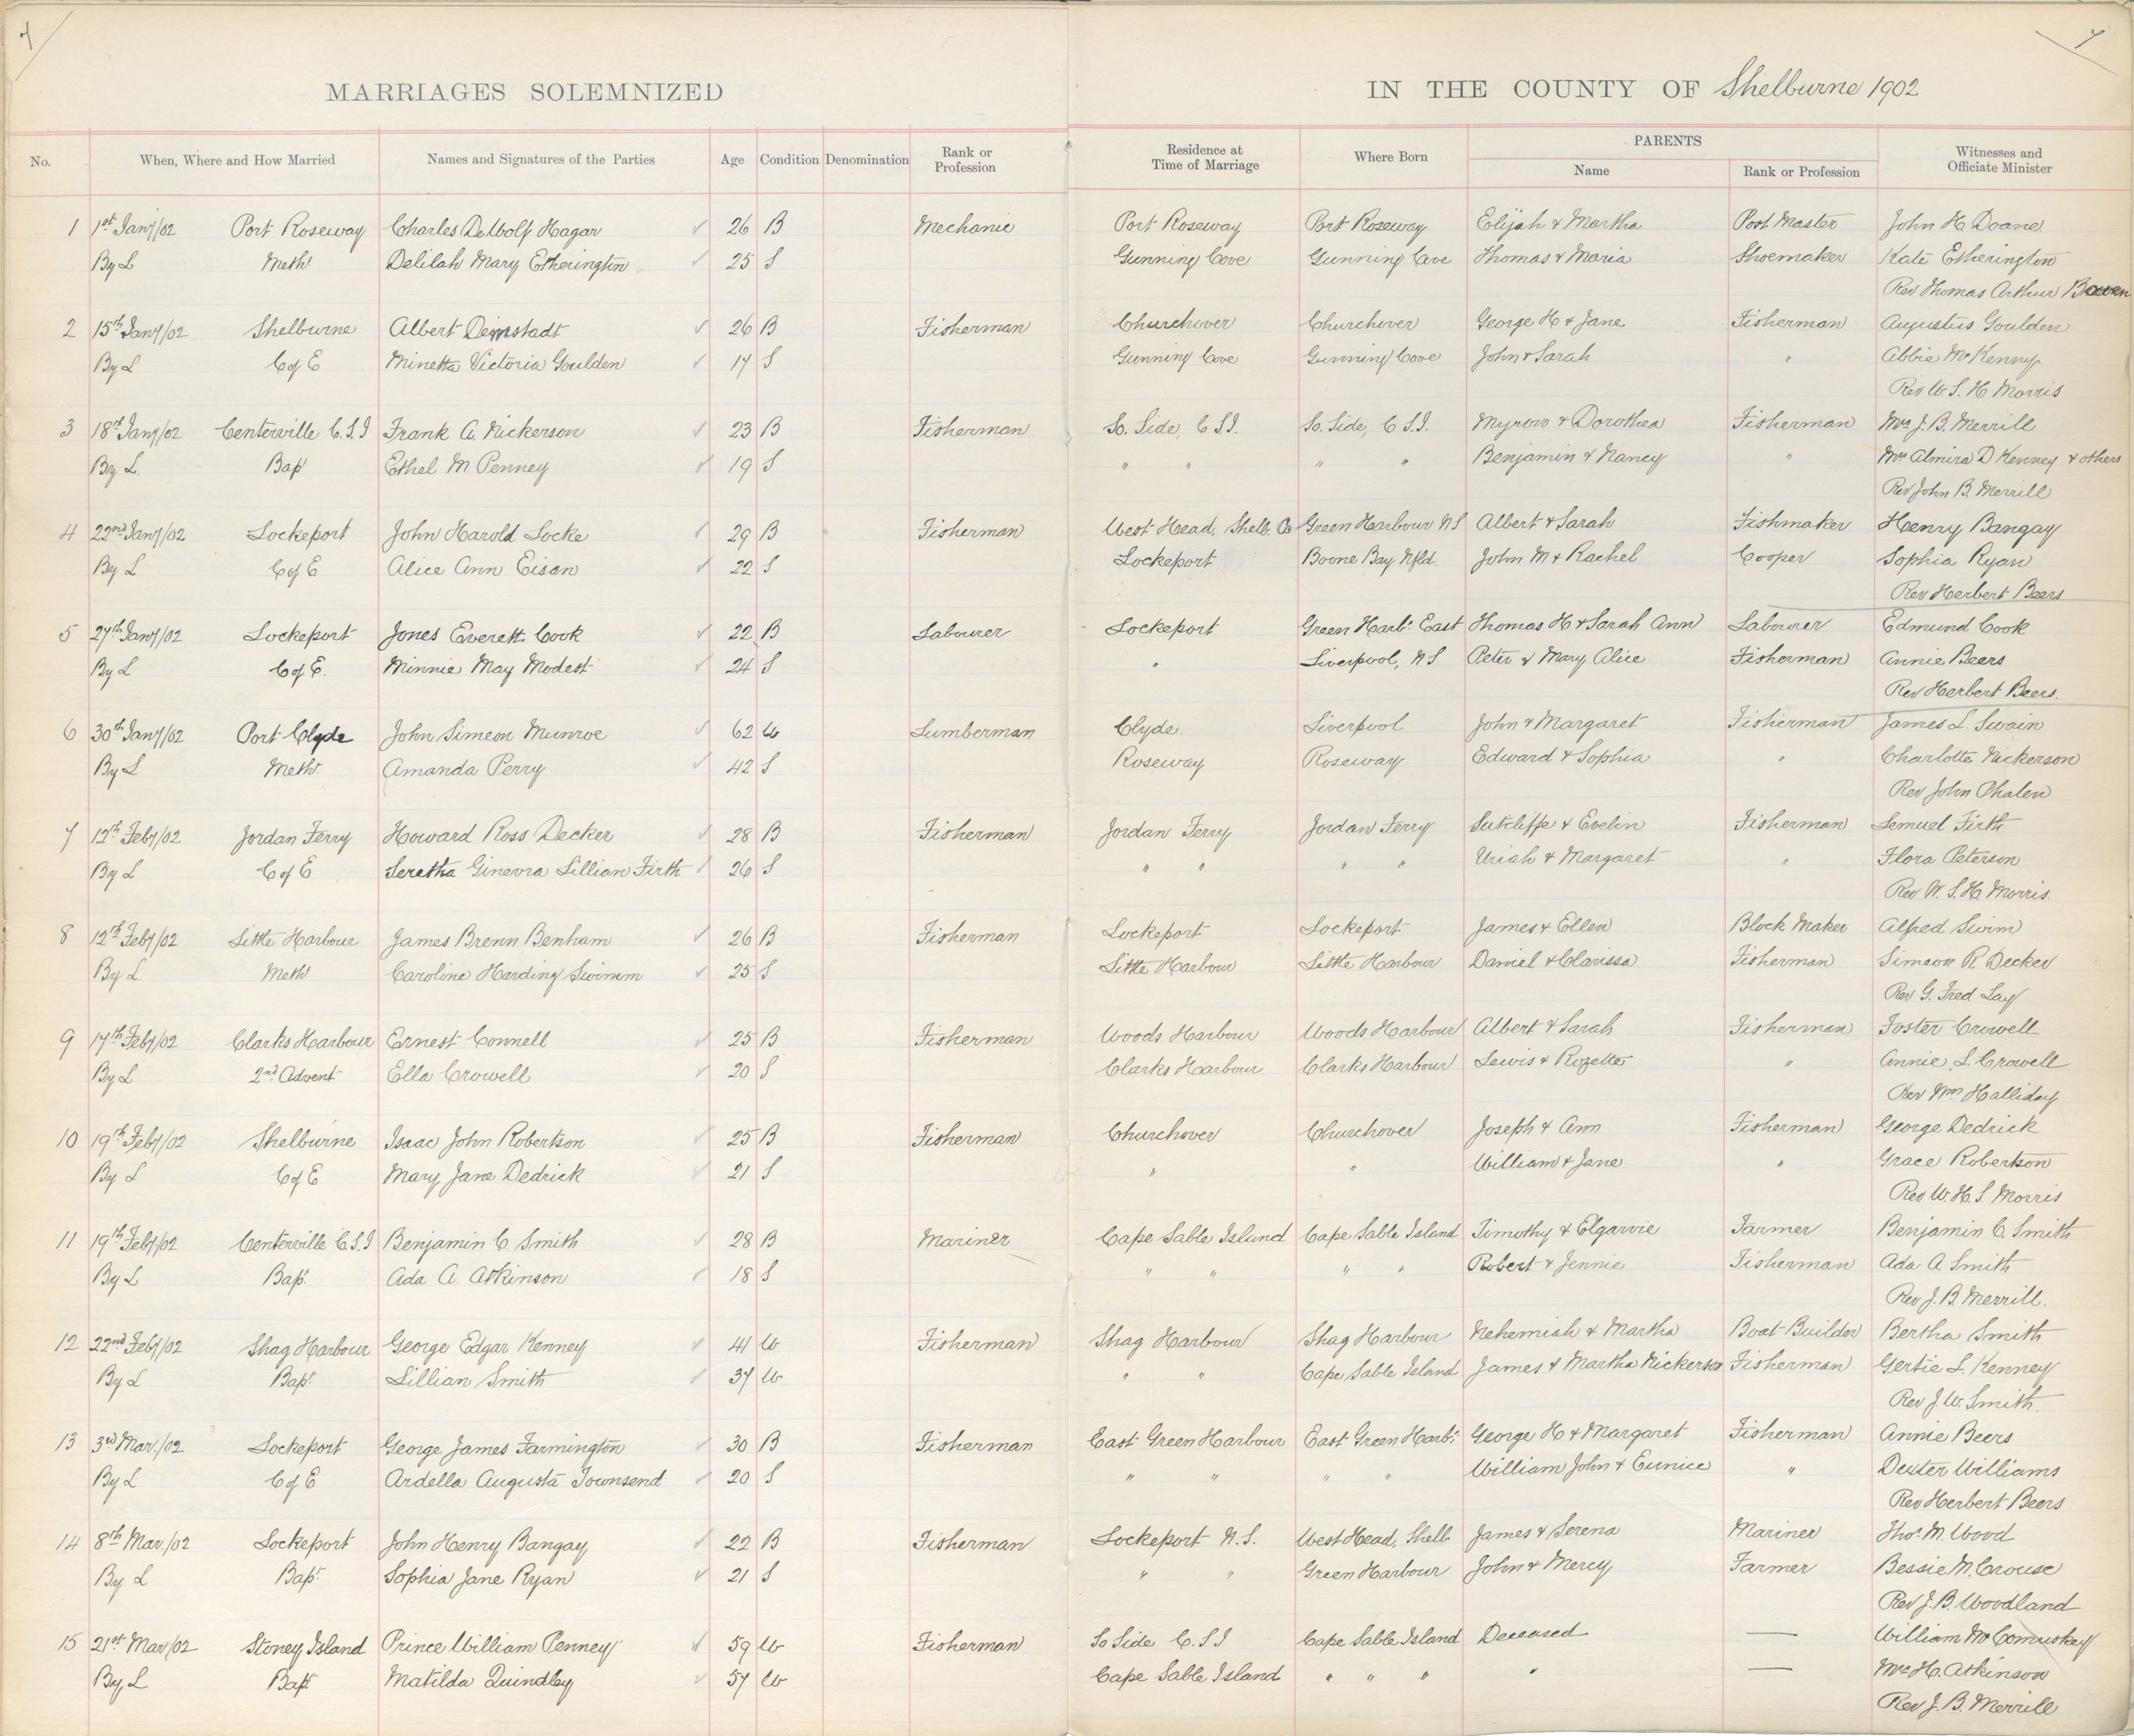 7 7
MARRIAGES SOLEMNIZED IN THE COUNTY OF Shelburne 1902
No. When, Where and How Married Names and Signatures of the Parties Age Condition Denomination Rank or Profession Residence at Time of Marriage Where Born PARENTS Name Rank or Profession Witnesses and Officiate Minister
1 1st Jany/02 Port Roseway Charles Delbolf Hagar 26 B Mechanic Port Roseway Port Roseway Elijah & Martha Post Master John H Doane
By L Meth Delilah Mary Etherington 25 S Gunning Cove Gunning Cove Thomas & Maria Shoemaker Kate Etherington
Rev Thomas Arthur Bowen
2 15th Jany/02 Shelburne Albert Demstadt 26 B Fisherman Churchover Churchover George H & Jane Fisherman Augustus Goulden
By L C of E Minetta Victoria Goulden 17 S Gunning Cove Gunning Cove John & Sarah " Abbie McKenny
Rev W. S. H Morris
3 18th Jany/02 Centerville C.S.I Frank A. Nickerson 23 B Fisherman So. Side, C S.I. So. Side, C S.I. Myrow & Dorothea Fisherman Mrs J. B. Merrill
By L. Bap Ethel M Penney 19 S " " " " Benjamin & Nancy " Mrs Almira D Kenney & others
Rev John B. Merrill
4 22nd Jany/02 Lockeport John Harold Locke 29 B Fisherman West Head, Shelb. Co Green Harbour NS Albert & Sarah Fishmaker Henry Bangay
By L C of E Alice Ann Eisan 22 S Lockeport Boone Bay Nfld. John M & Rachel Cooper Sophia Ryan
Rev Herbert Beers
5 27th Jany/02 Lockeport Jones Everett Cook 22 B Labourer Lockeport Green Harbr East Thomas H & Sarah Ann Labourer Edmund Cook
By L C of E. Minnie May Modest 24 S " Liverpool, NS Peter & Mary Alice Fisherman Annie Beers
Rev Herbert Beers.
6 30th Jany/02 Port Clyde John Simeon Munroe 62 W Lumberman Clyde Liverpool John & Margaret Fisherman James L. Swain
By L Meth. Amanda Perry 42 S Roseway Roseway Edward & Sophia " Charlotte Nickerson
Rev John Phalen
7 12th Feby/02 Jordan Ferry Howard Ross Decker 28 B Fisherman Jordan Ferry Jordan Ferry Sutcliffe & Evelin Fisherman Lemuel Firth
By L C of E Seretha Ginevra Lillian Firth 26 S " " " " Uriah & Margaret " Flora Peterson
Rev W. S. H. Morris
8 12th Feby/02 Little Harbour James Brenn Benham 26 B Fisherman Lockeport Lockeport James & Ellen Block Maker Alfred Swim
By L Meth Caroline Harding Swimm 25 S Little Harbour Little Harbour Daniel & Clarissa Fisherman Simeon R. Decker
Rev G. Fred Day
9 17th Feby/02 Clarks Harbour Ernest Connell 25 B Fisherman Woods Harbour Woods Harbour Albert & Sarah Fisherman Foster Crowell
By L 2nd Advent Ella Crowell 20 S Clarks Harbour Clarks Harbour Lewis & Rozette " Annie L. Crowell
Rev Wm Halliday
10 19th Feby/02 Shelburne Isaac John Robertson 25 B Fisherman Churchover Churchover Joseph & Ann Fisherman George Dedrick
By L C of E Mary Jane Dedrick 21 S " " William & Jane " Grace Robertson
Rev W H. S. Morris
11 19th Feby/02 Centerville C.S.I Benjamin C Smith 28 B Mariner Cape Sable Island Cape Sable Island Timothy & Elgarvie Farmer Benjamin C. Smith
By L Bap. Ada A. Atkinson 18 S " " " " Robert & Jennie Fisherman Ada A Smith
Rev J. B. Merrill.
12 22nd Feby/02 Shag Harbour George Edgar Kenney 41 W Fisherman Shag Harbour Shag Harbour Nehemiah & Martha Boat Builder Bertha Smith
By L Bap. Lillian Smith 37 W " " Cape Sable Island James & Martha Nickerson Fisherman Gertie L. Kenney
Rev J. W. Smith.
13 3rd Mar./02 Lockeport George James Farmington 30 B Fisherman East Green Harbour East Green Harbr George H & Margaret Fisherman Annie Beers
By L C of E Ardella Augusta Townsend 20 S " " " " William John & Eunice " Dexter Williams
Rev Herbert Beers
14 8th Mar./02 Lockeport John Henry Bangay 22 B Fisherman Lockeport N.S. West Head, Shelb James & Serena Mariner Thos M. Wood
By L Bap. Sophia Jane Ryan 21 S " " Green Harbour John & Mercy Farmer Bessie M. Crouse
Rev J. B. Woodland
15 21st Mar/02 Stoney Island Prince William Penney 59 W Fisherman So Side C.S.I Cape Sable Island Deceased — William McComiskey
By L Bap. Matilda Quindley 57 W Cape Sable Island " " " " — Mrs H. Atkinson
Rev J. B. Merrill